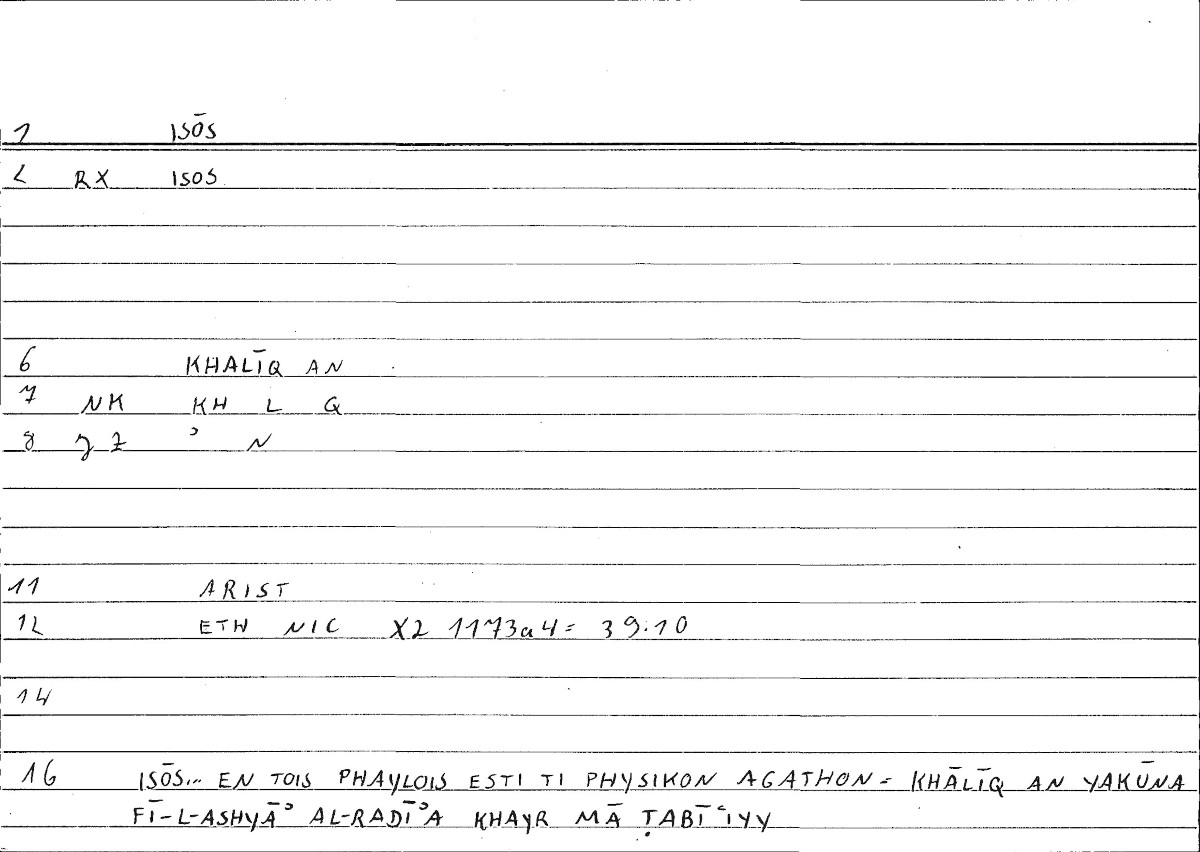 1 ISŌS
2 RX ISOS
6 KHALĪQ AN
7 NK KH L Q
8 ʾ N
11 ARIST
12 ETH NIC X2 1173a4 = 39.10
14
16 ISŌS... EN TOIS PHAYLOIS ESTI TI PHYSIKON AGATHON = KHĀLĪQ AN YAKŪNA
FĪ-L-ASHYĀʾ AL-RADĪʾA KHAYR MĀ ṬABĪʿIYY